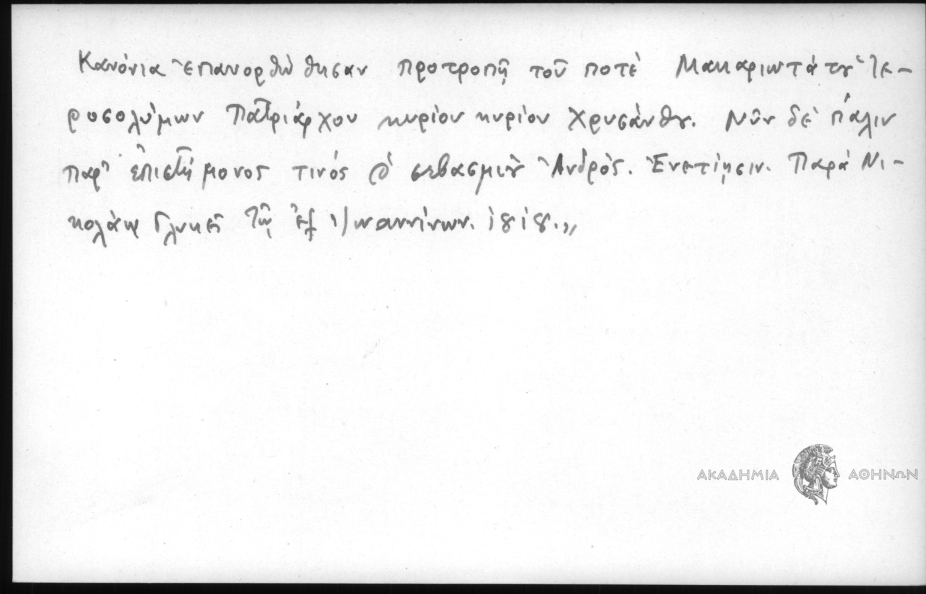 Κανόνια ἐπανορθώθησαν προτροπῇ τοῦ ποτὲ Μακαριωτάτου Ἱε-
ροσολύμων Πατριάρχου κυρίου κυρίου Χρυσάνθου. Νῦν δὲ πάλιν
παρ' ἐπιστήμονος τινός σεβασμίου Ἀνδρὸς. Ἐνετίησιν. Παρὰ Νι-
κολάῳ Γλυκεῖ τῷ ἐξ Ἰωαννίνων.
ΑΚΑΔΗΜΙΑ ΑΘΗΝΩΝ